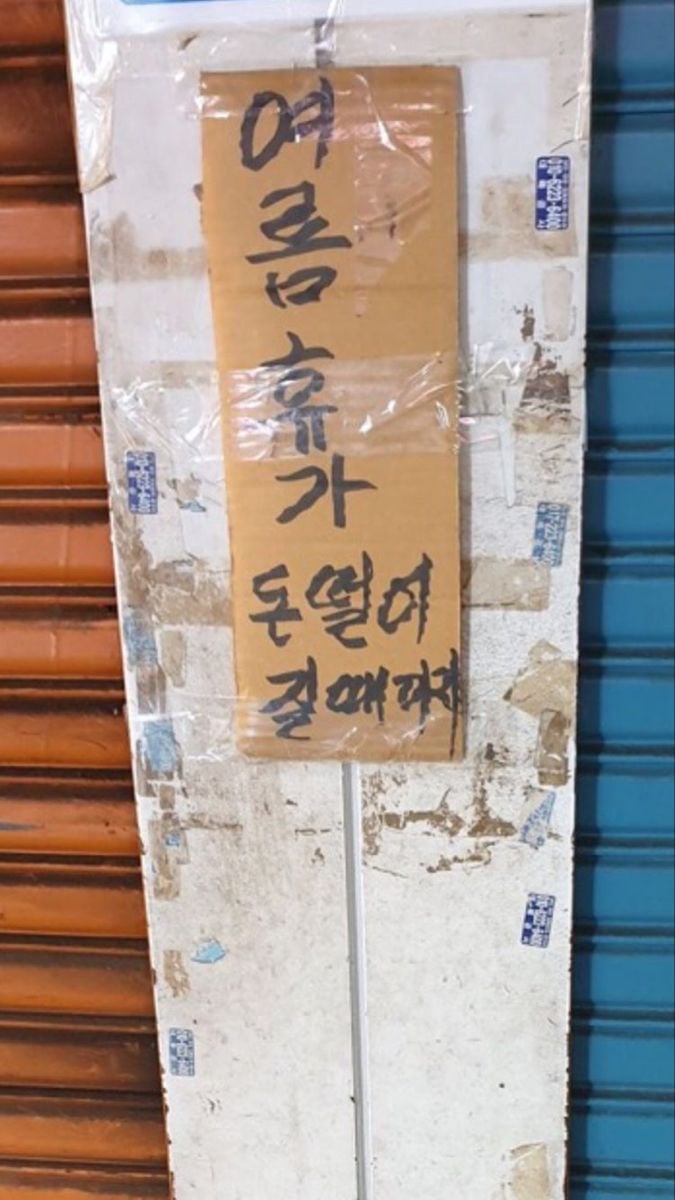 여름
휴가
돈떨어
질때까지